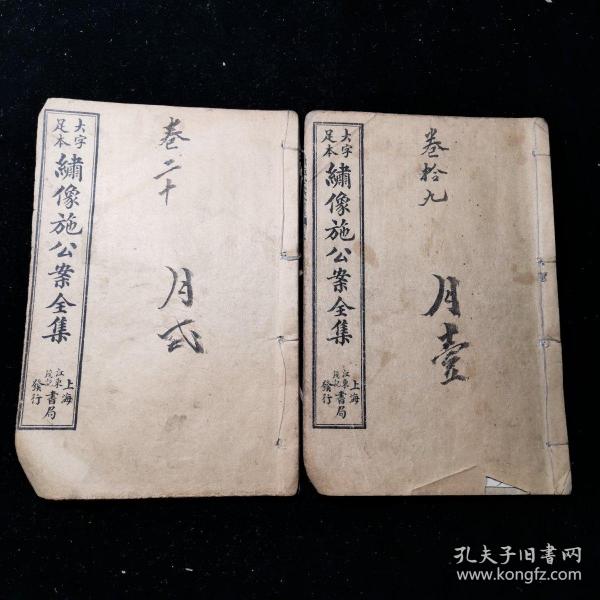 大字
足本
繡像施公案全集
上海
江東茂記書局
發行
卷二十
月弍
大字
足本
繡像施公案全集
上海
江東茂記書局
發行
卷拾九
月壹
孔夫子旧书网
www.kongfz.com